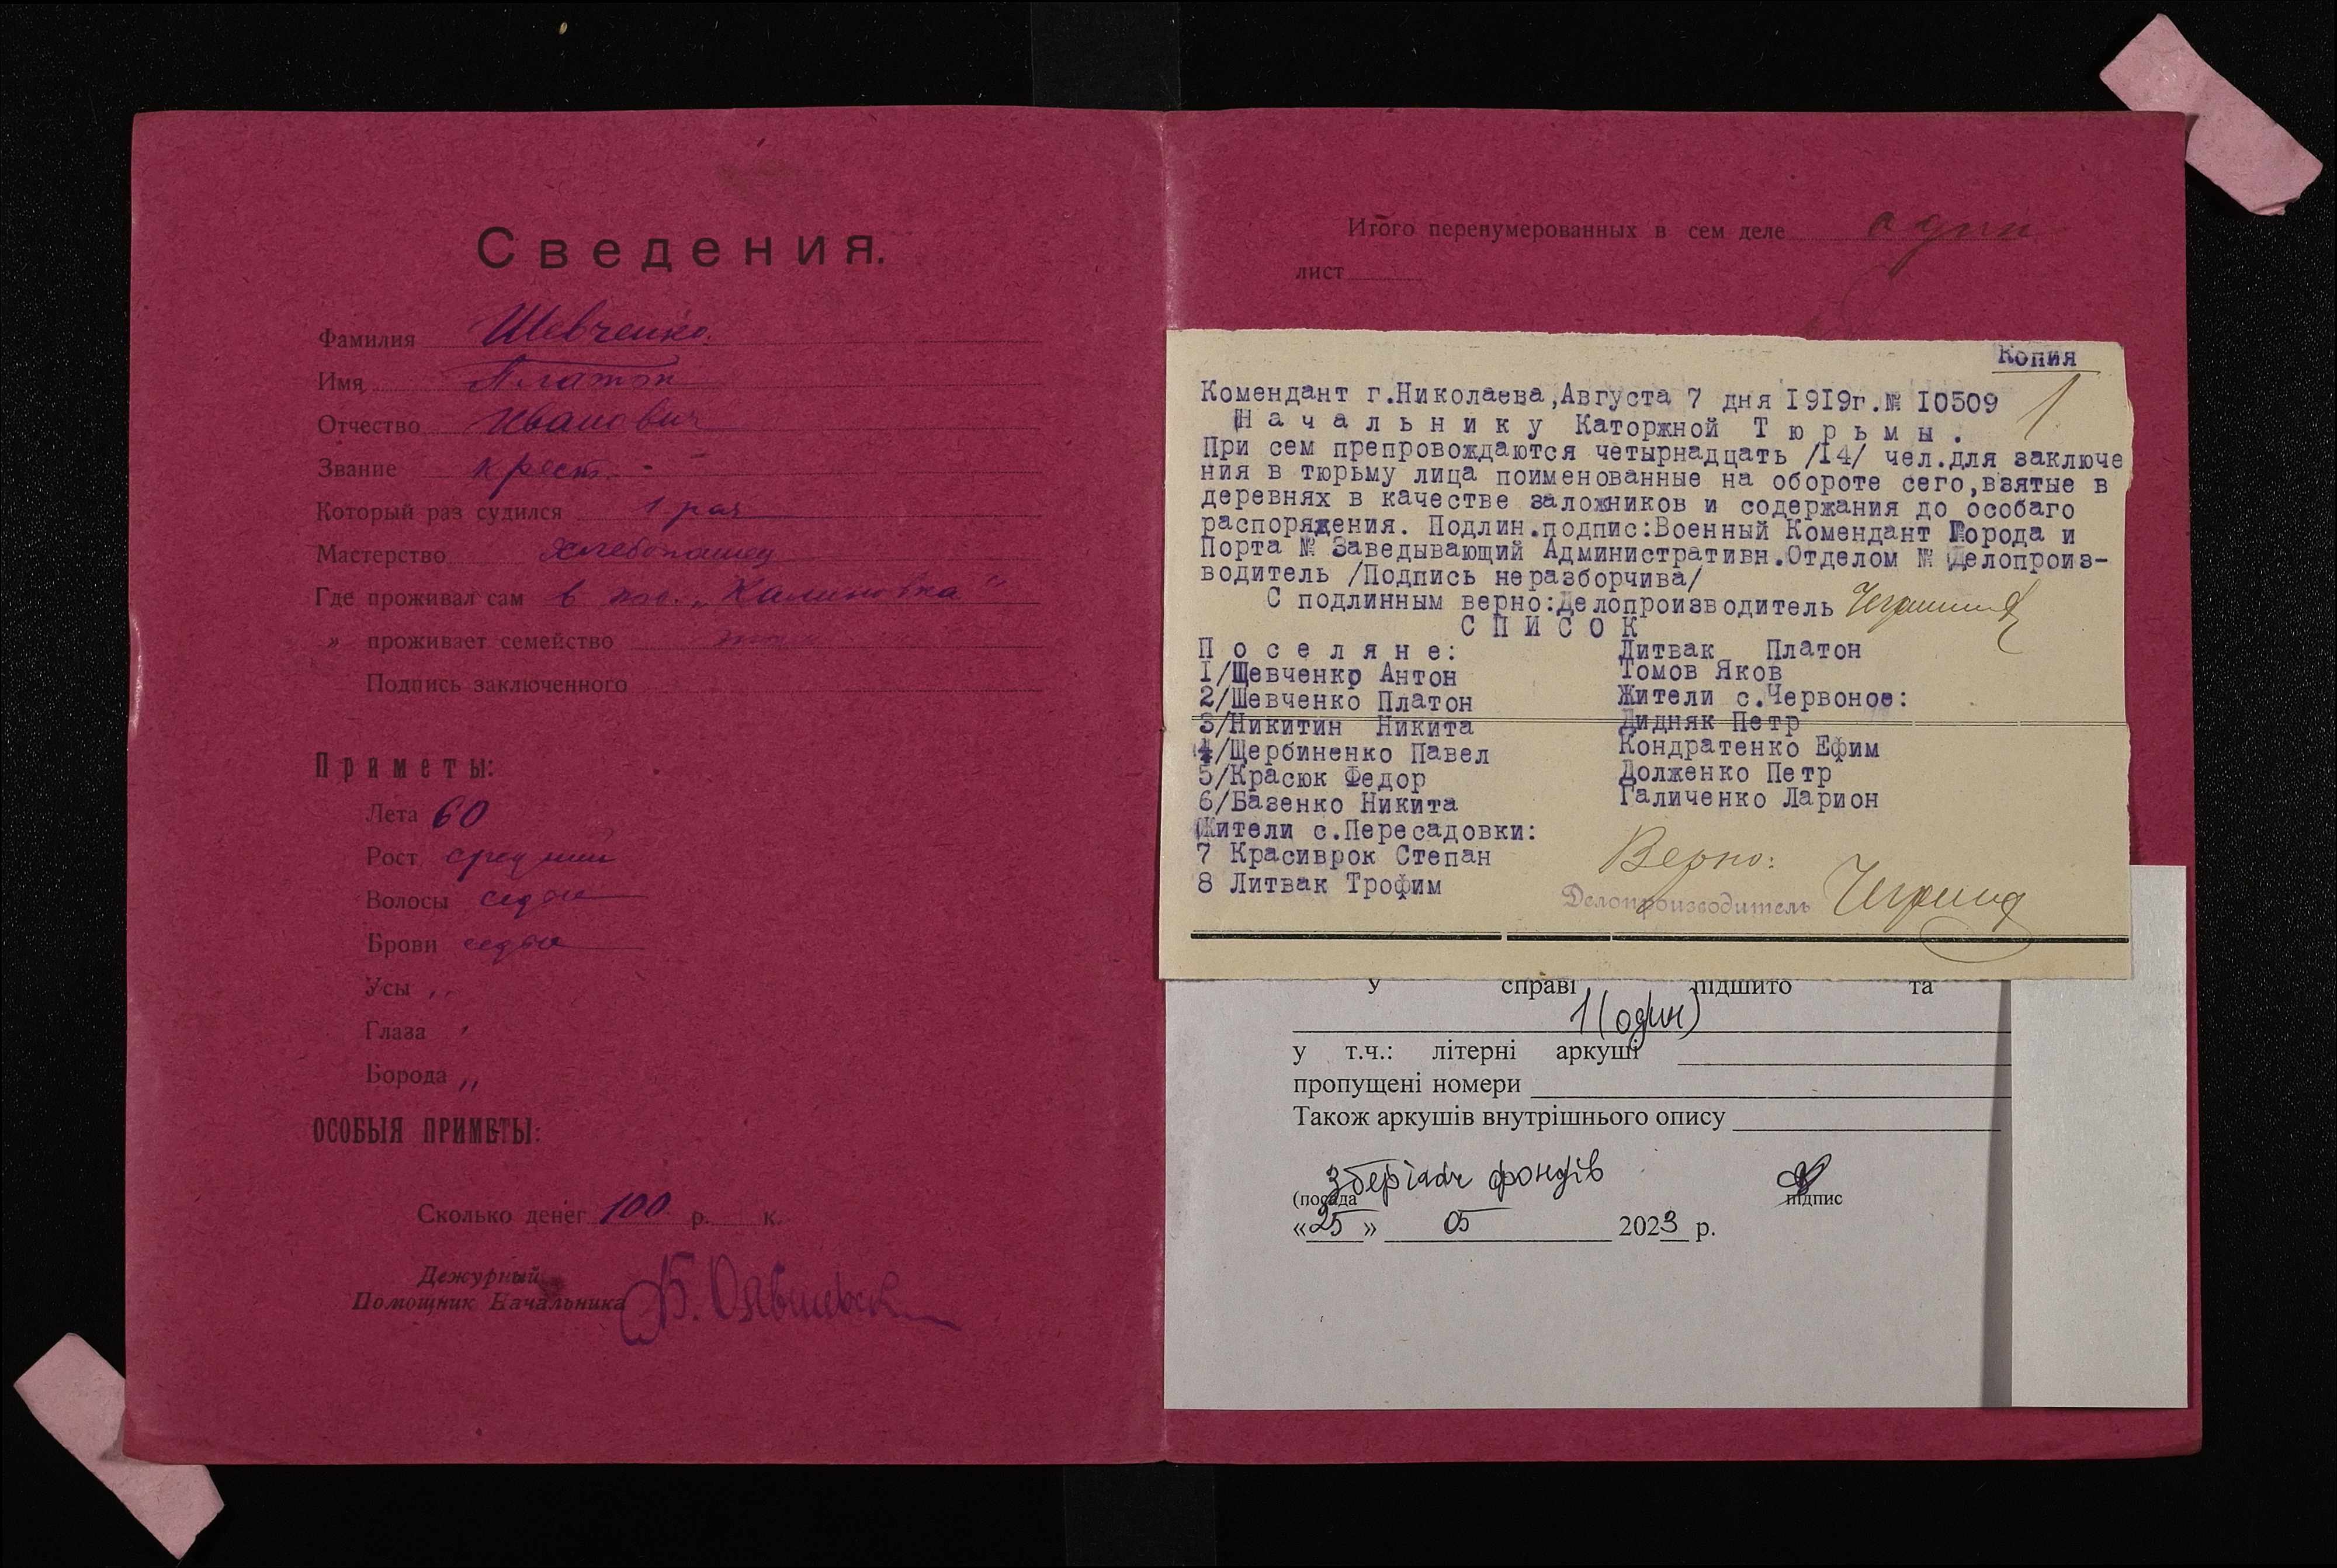 Сведения.
Фамилия Шевченко.
Имя Платон
Отчество Иванович
Звание крест. -
Который раз судился 1 раз
Мастерство хлебопашец
Где проживал сам в кол. „Калиновка"
» проживает семейство
Подпись заключенного
Приметы:
Лета 60
Рост средний
Волосы седые
Брови седые
Усы ,,
Глаза ,
Борода ,,
ОСОБЫЯ ПРИМЕТЫ:
Сколько денег 100 р. к.
Дежурный
Помощник Начальника
Итого перенумерованных в сем деле один
лист
Копия
1
Комендант г.Николаева,Августа 7 дня I9I9г.№ I0509
Начальнику Каторжной Тюрьмы.
При сем препровождаются четырнадцать /I4/ чел.для заключе
ния в тюрьму лица поименованные на обороте сего,взятые в
деревнях в качестве заложников и содержания до особаго
распоряжения. Подлин.подпис:Военный Комендант Города и
Порта № Заведывающий Административн.Отделом № Делопроиз-
водитель /Подпись неразборчива/
С подлинным верно:Делопроизводитель
СПИСОК
Поселяне:
1/Шевченко Антон
2/Шевченко Платон
3/Никитин Никита
4/Щербиненко Павел
5/Красюк Федор
6/Базенко Никита
Жители с.Пересадовки:
7 Красиврок Степан
8 Литвак Трофим
Литвак Платон
Томов Яков
Жители с.Червоное:
Дидняк Петр
Кондратенко Ефим
Долженко Петр
Галиченко Ларион
Верно:
Делопроизводитель
У справі підшито та
1 (один)
у т.ч.: літерні аркуші
пропущені номери
Також аркушів внутрішнього опису
Зберігач фондів
(посада підпис
«25» 05 2023 р.